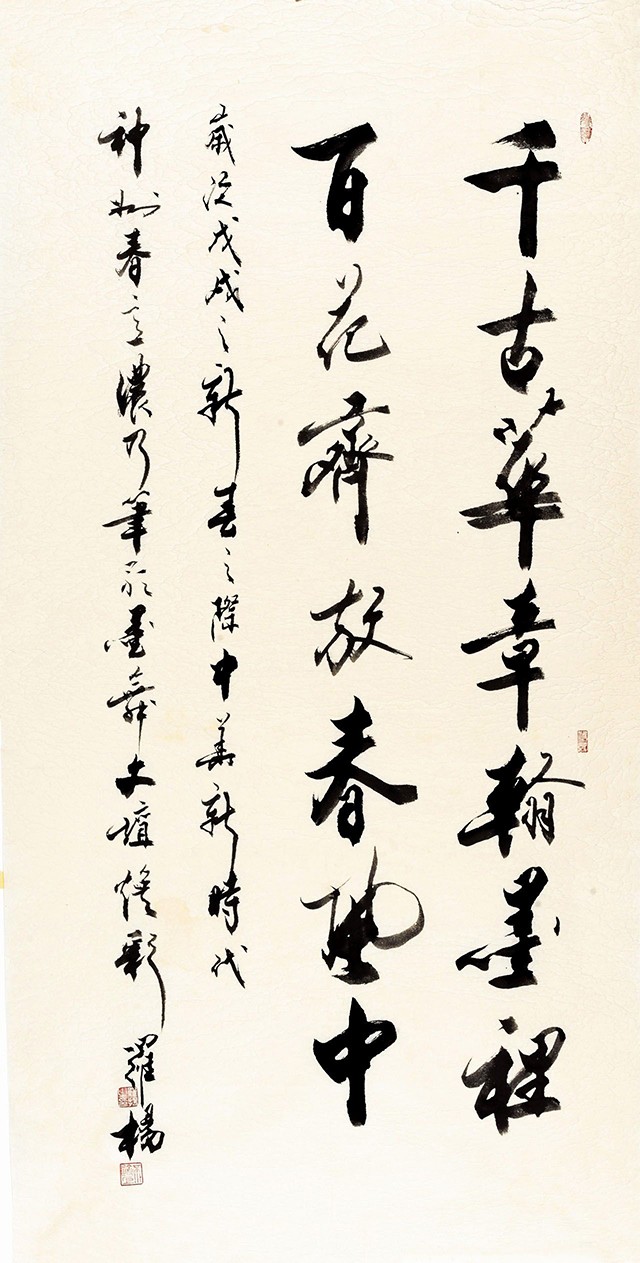 千古華章翰墨裡
百花齊放春風中
歲次戊戌之新春之際中華新時代
神州春意濃乃筆歌墨舞文壇煥彩
羅楊